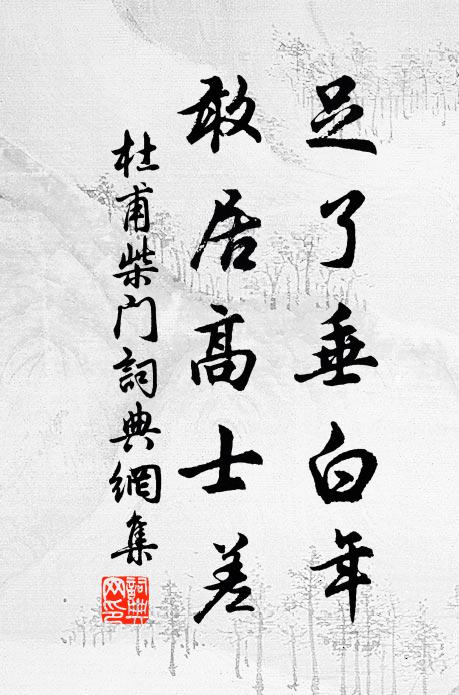 足了垂白年
敢居高士差
杜甫柴门词典網集